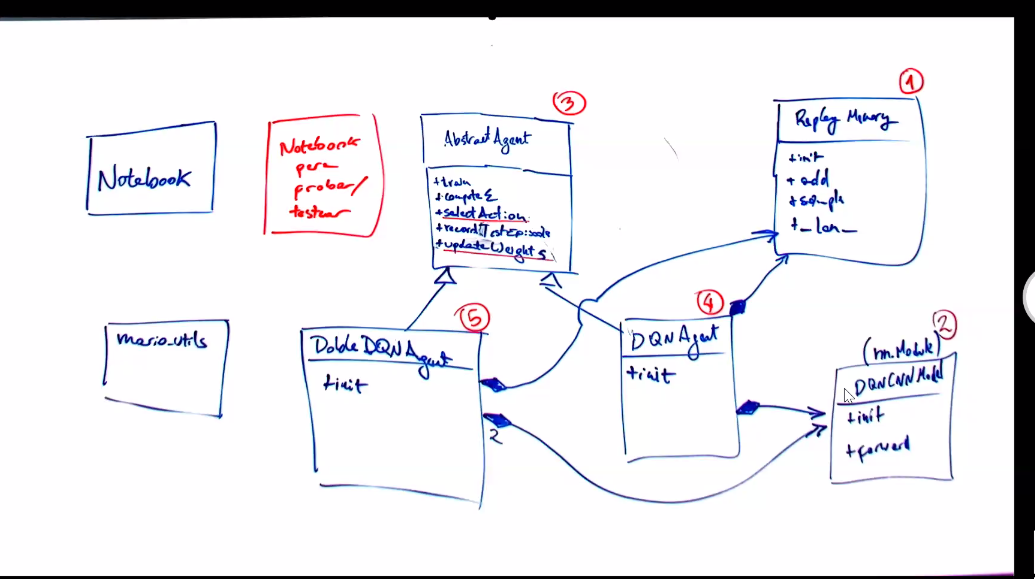 Notebook
Notebook
para
probar/
testear
3
AbstractAgent
+train
+compute ε
+selectAction
+recordTestEpisode
+updateWeights
1
Replay Memory
+init
+add
+sample
+_len_
mario_utils
5
Doble DQNAgent
+init
2
4
DQNAgent
+init
2
(nn.Module)
DQNCNNModel
+init
+forward